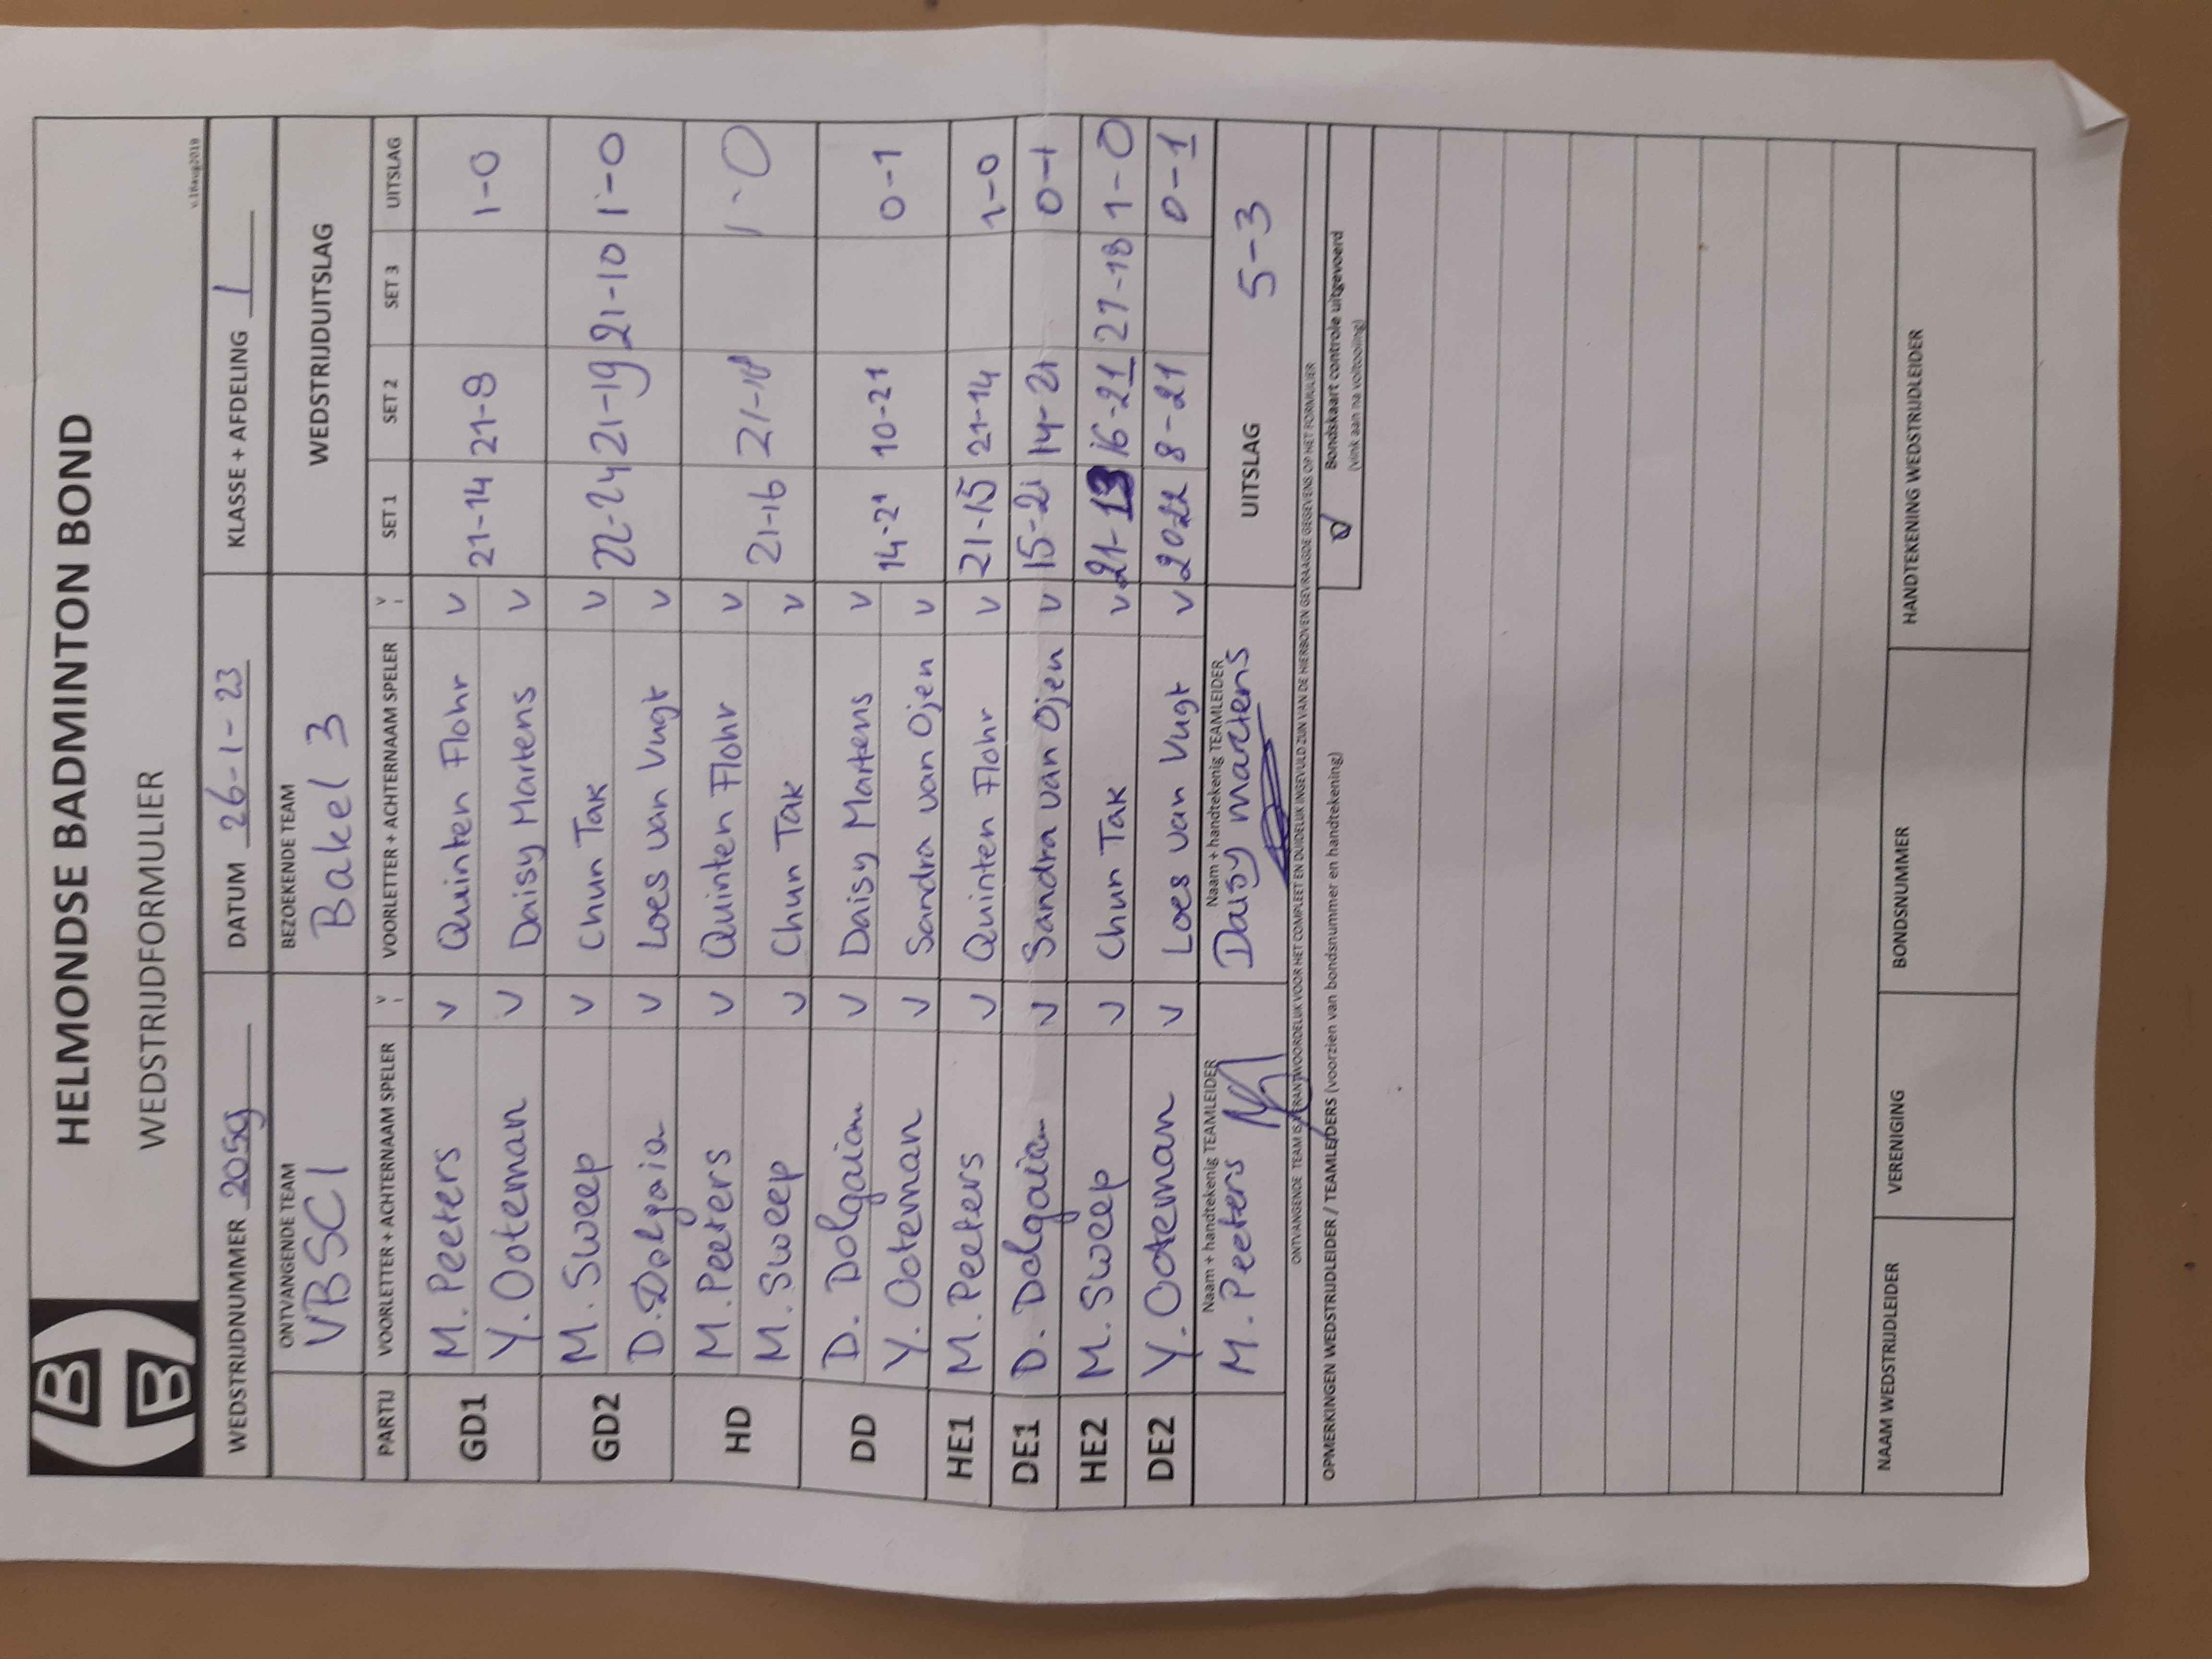 HELMONDSE BADMINTON BOND
WEDSTRIJDFORMULIER
v.16aug2019
WEDSTRIJDNUMMER 2059 DATUM 26-1-23 KLASSE + AFDELING 1
ONTVANGENDE TEAM BEZOEKENDE TEAM WEDSTRIJDUITSLAG
VBSC 1 Bakel 3
PARTIJ VOORLETTER + ACHTERNAAM SPELER V VOORLETTER + ACHTERNAAM SPELER V SET 1 SET 2 SET 3 UITSLAG
GD1 M. Peeters v Quinten Flohr v 21-14 21-8 1-0
Y. Ooteman v Daisy Martens v
GD2 M. Sweep v Chun Tak v 22-24 21-19 21-10 1-0
D. Dolgaia v Loes van Vugt v
HD M. Peeters v Quinten Flohr v 21-16 21- 1-0
M. Sweep v Chun Tak v
DD D. Dolgaian v Daisy Martens v 14-21 10-21 0-1
Y. Ooteman v Sandra van Ojen v
HE1 M. Peeters v Quinten Flohr v 21-15 21-14 1-0
DE1 D. Dolgaian v Sandra van Ojen v 15-21 14-21 0-1
HE2 M. Sweep v Chun Tak v 21-13 16-21 21-18 1-0
DE2 Y. Ooteman v Loes van Vugt v 20-22 8-21 0-1
Naam + handtekenig TEAMLEIDER Naam + handtekenig TEAMLEIDER UITSLAG 5-3
M. Peeters Daisy martens
ONTVANGENDE TEAM IS VERANTWOORDELIJK VOOR HET COMPLEET EN DUIDELIJK INGEVULD ZIJN VAN DE HIERBOVEN GEVRAAGDE GEGEVENS OP HET FORMULIER
OPMERKINGEN WEDSTRIJDLEIDER / TEAMLEIDERS (voorzien van bondsnummer en handtekening)
Bondskaart controle uitgevoerd
(vink aan na voltooiing)
NAAM WEDSTRIJDLEIDER VERENIGING BONDSNUMMER HANDTEKENING WEDSTRIJDLEIDER